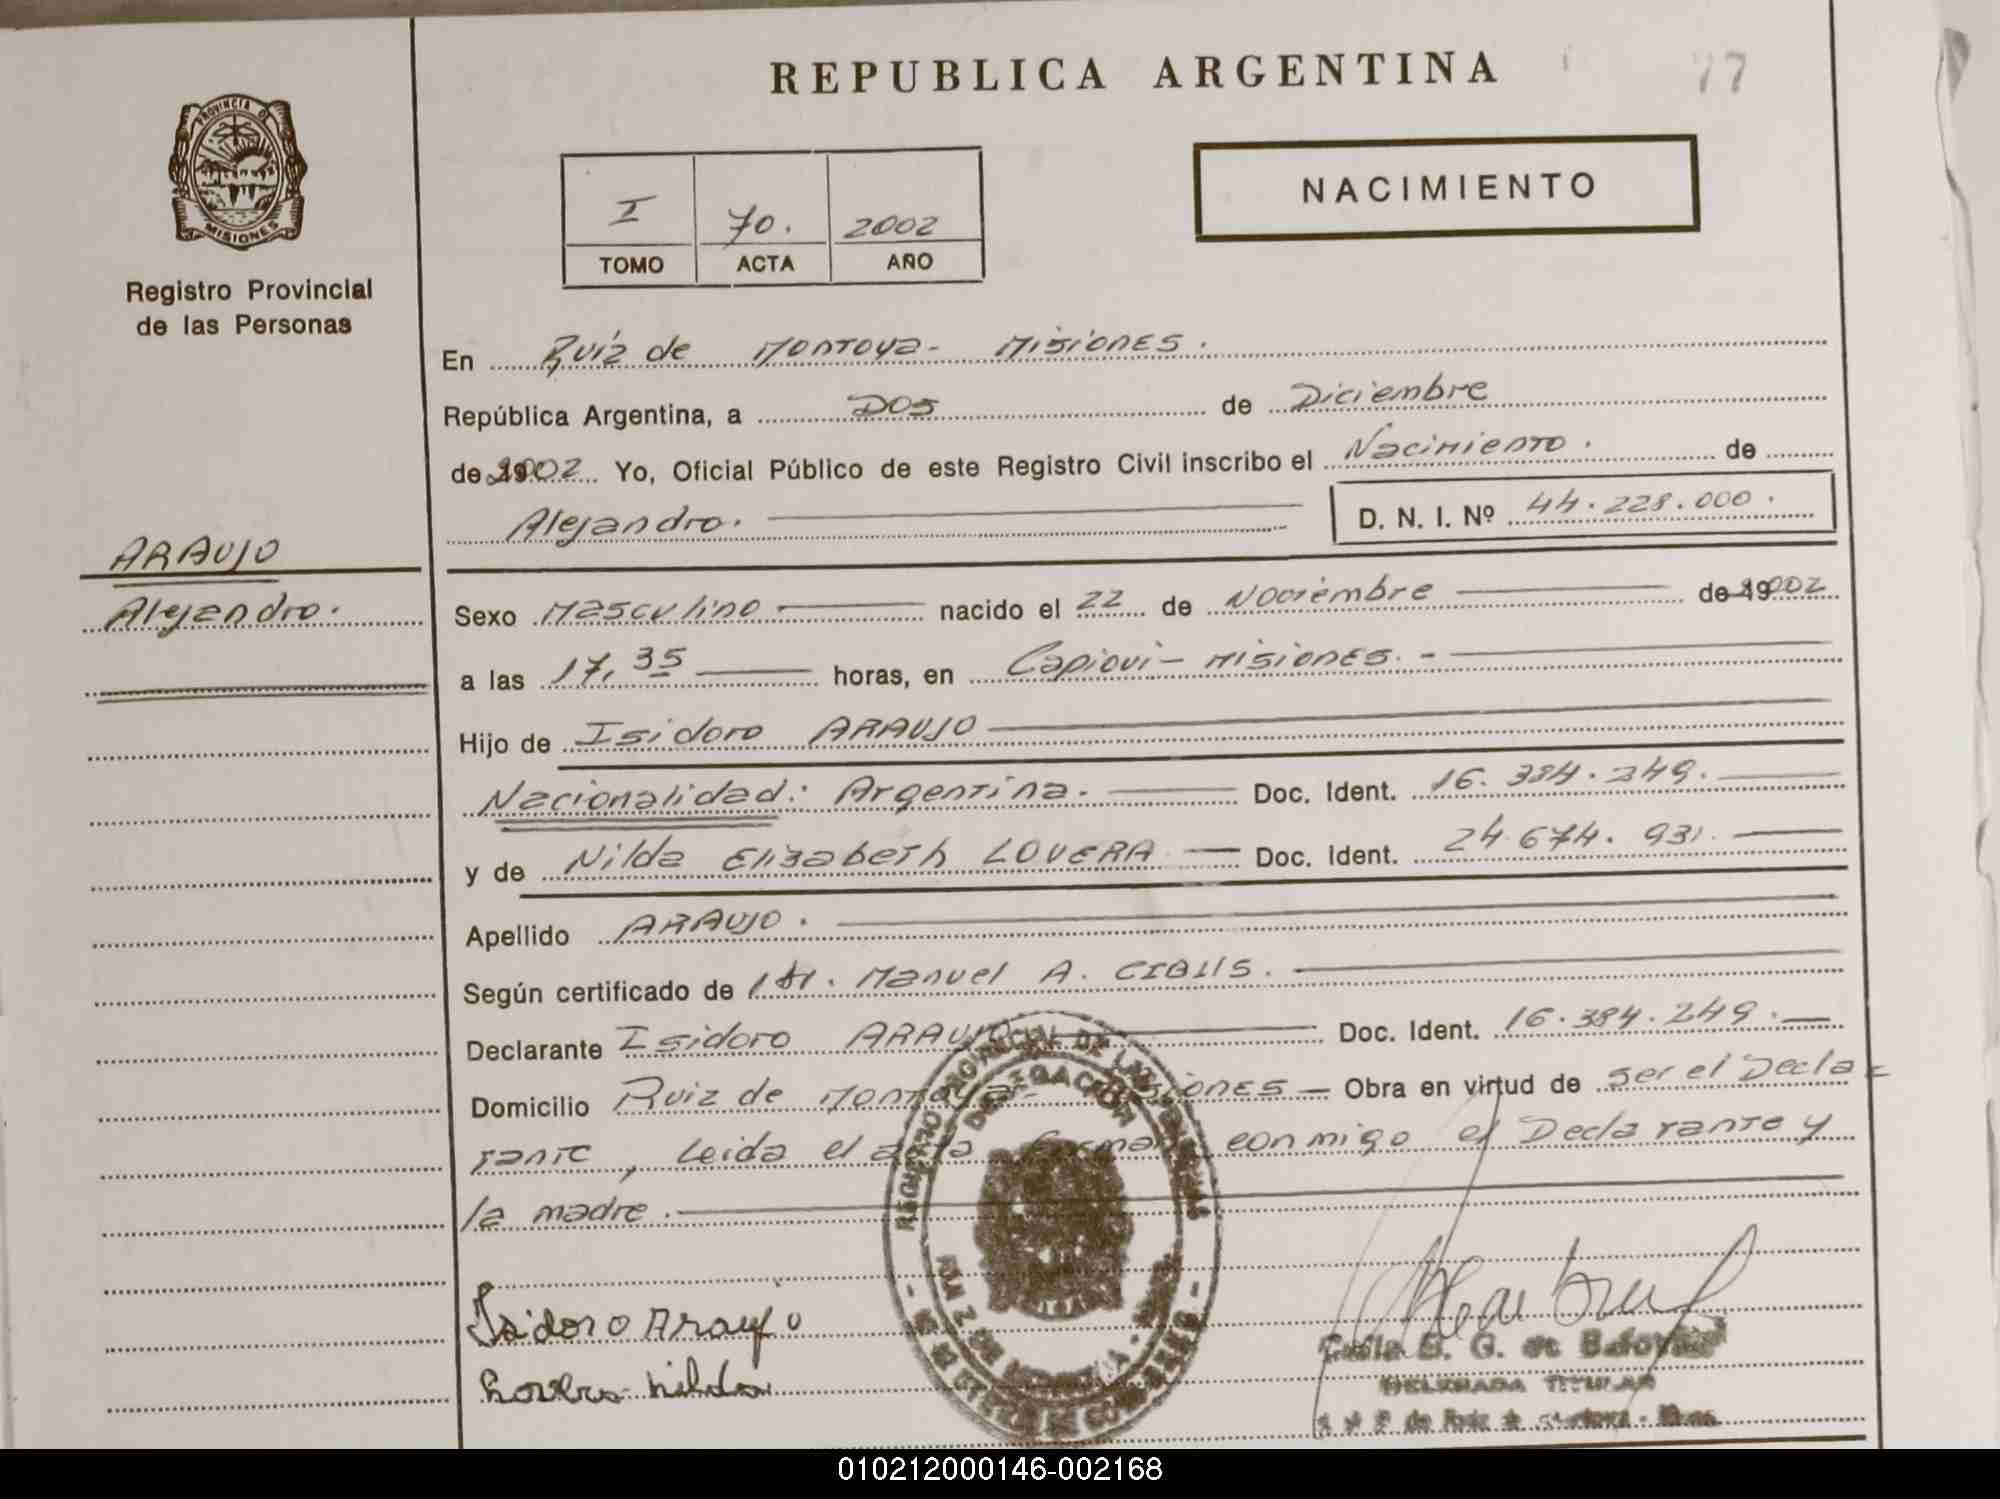 REPUBLICA ARGENTINA
77
PROVINCIA D
MISIONES
Registro Provincial
de las Personas
NACIMIENTO
I 70. 2002
TOMO ACTA AÑO
En Ruíz de Montoya - Misiones.
República Argentina, a Dos de Diciembre
de 2002 Yo, Oficial Público de este Registro Civil inscribo el Nacimiento. de
Alejandro. D. N. I. Nº 44.228.000.
ARAUJO
Alejandro.
Sexo Masculino nacido el 22 de Noviembre de 2002
a las 17,35 horas, en Capiovi - Misiones. -
Hijo de Isidoro ARAUJO
Nacionalidad: Argentina. Doc. Ident. 16.384.249.
y de Nilda Elizabeth LOVERA Doc. Ident. 24.674.931.
Apellido ARAUJO.
Según certificado de Manuel A.
Declarante Isidoro ARAUJO Doc. Ident. 16.384.249.
Domicilio Ruiz de Montoya - Misiones - Obra en virtud de ser el Decla-
rante, Leida el acta firman conmigo el Declarante y
la madre.
Isidoro Araujo
Lovera Nilda
DELEGADA TITULAR
010212000146-002168